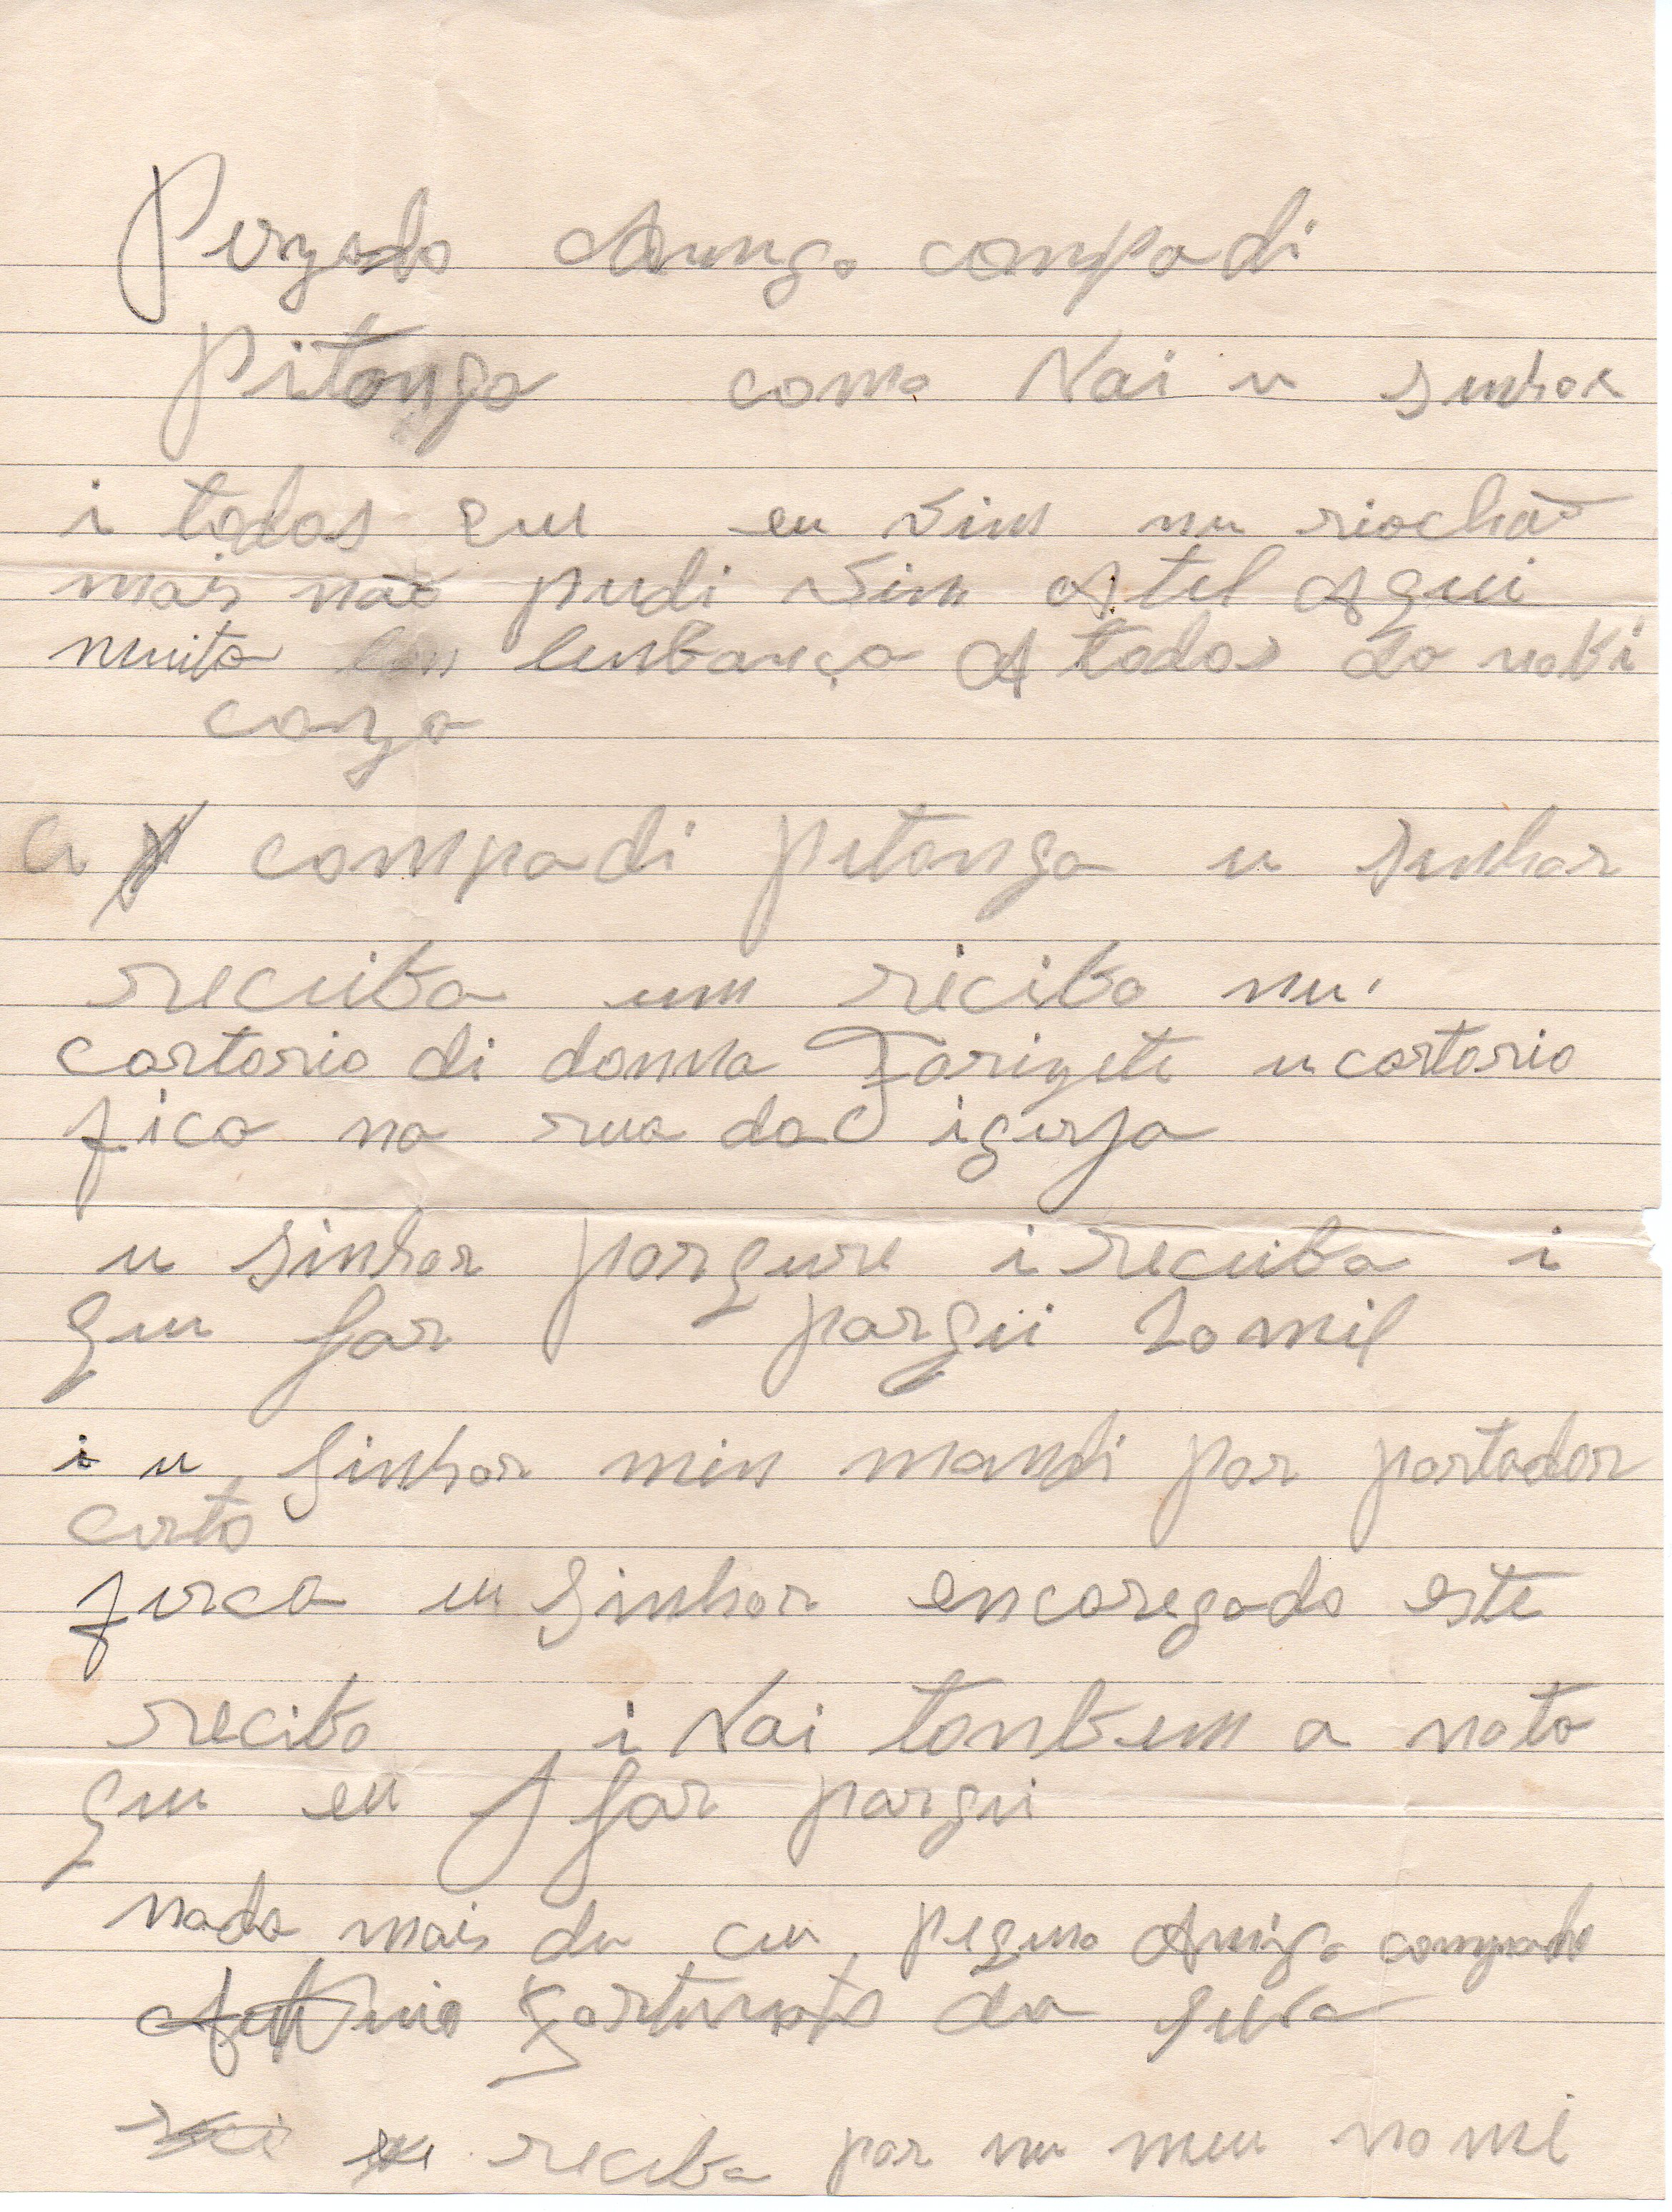 Perzado Amingo compadi
Pitanga como Vai u senhor
i todos eu eu vim nu riachão
mais não pudi vim Atel Aqui
muita lenbança A todos da
caza
a compadi pitanga u senhor
receiba um recibo nu
cartorio di donna Farizete u cartorio
fica na rua da igerja
u sinhor porqure i receiba i
qeu far pargui 20 mil
i u sinhor min mandi por portador
certo
ferca u sinhor encaregado este
recibo i Vai tanbem a nota
qeu eu far pargui
nada mais du ceu pequno Amigo compade
Antonio Fortunato da Silva
reciba par nu meu nome